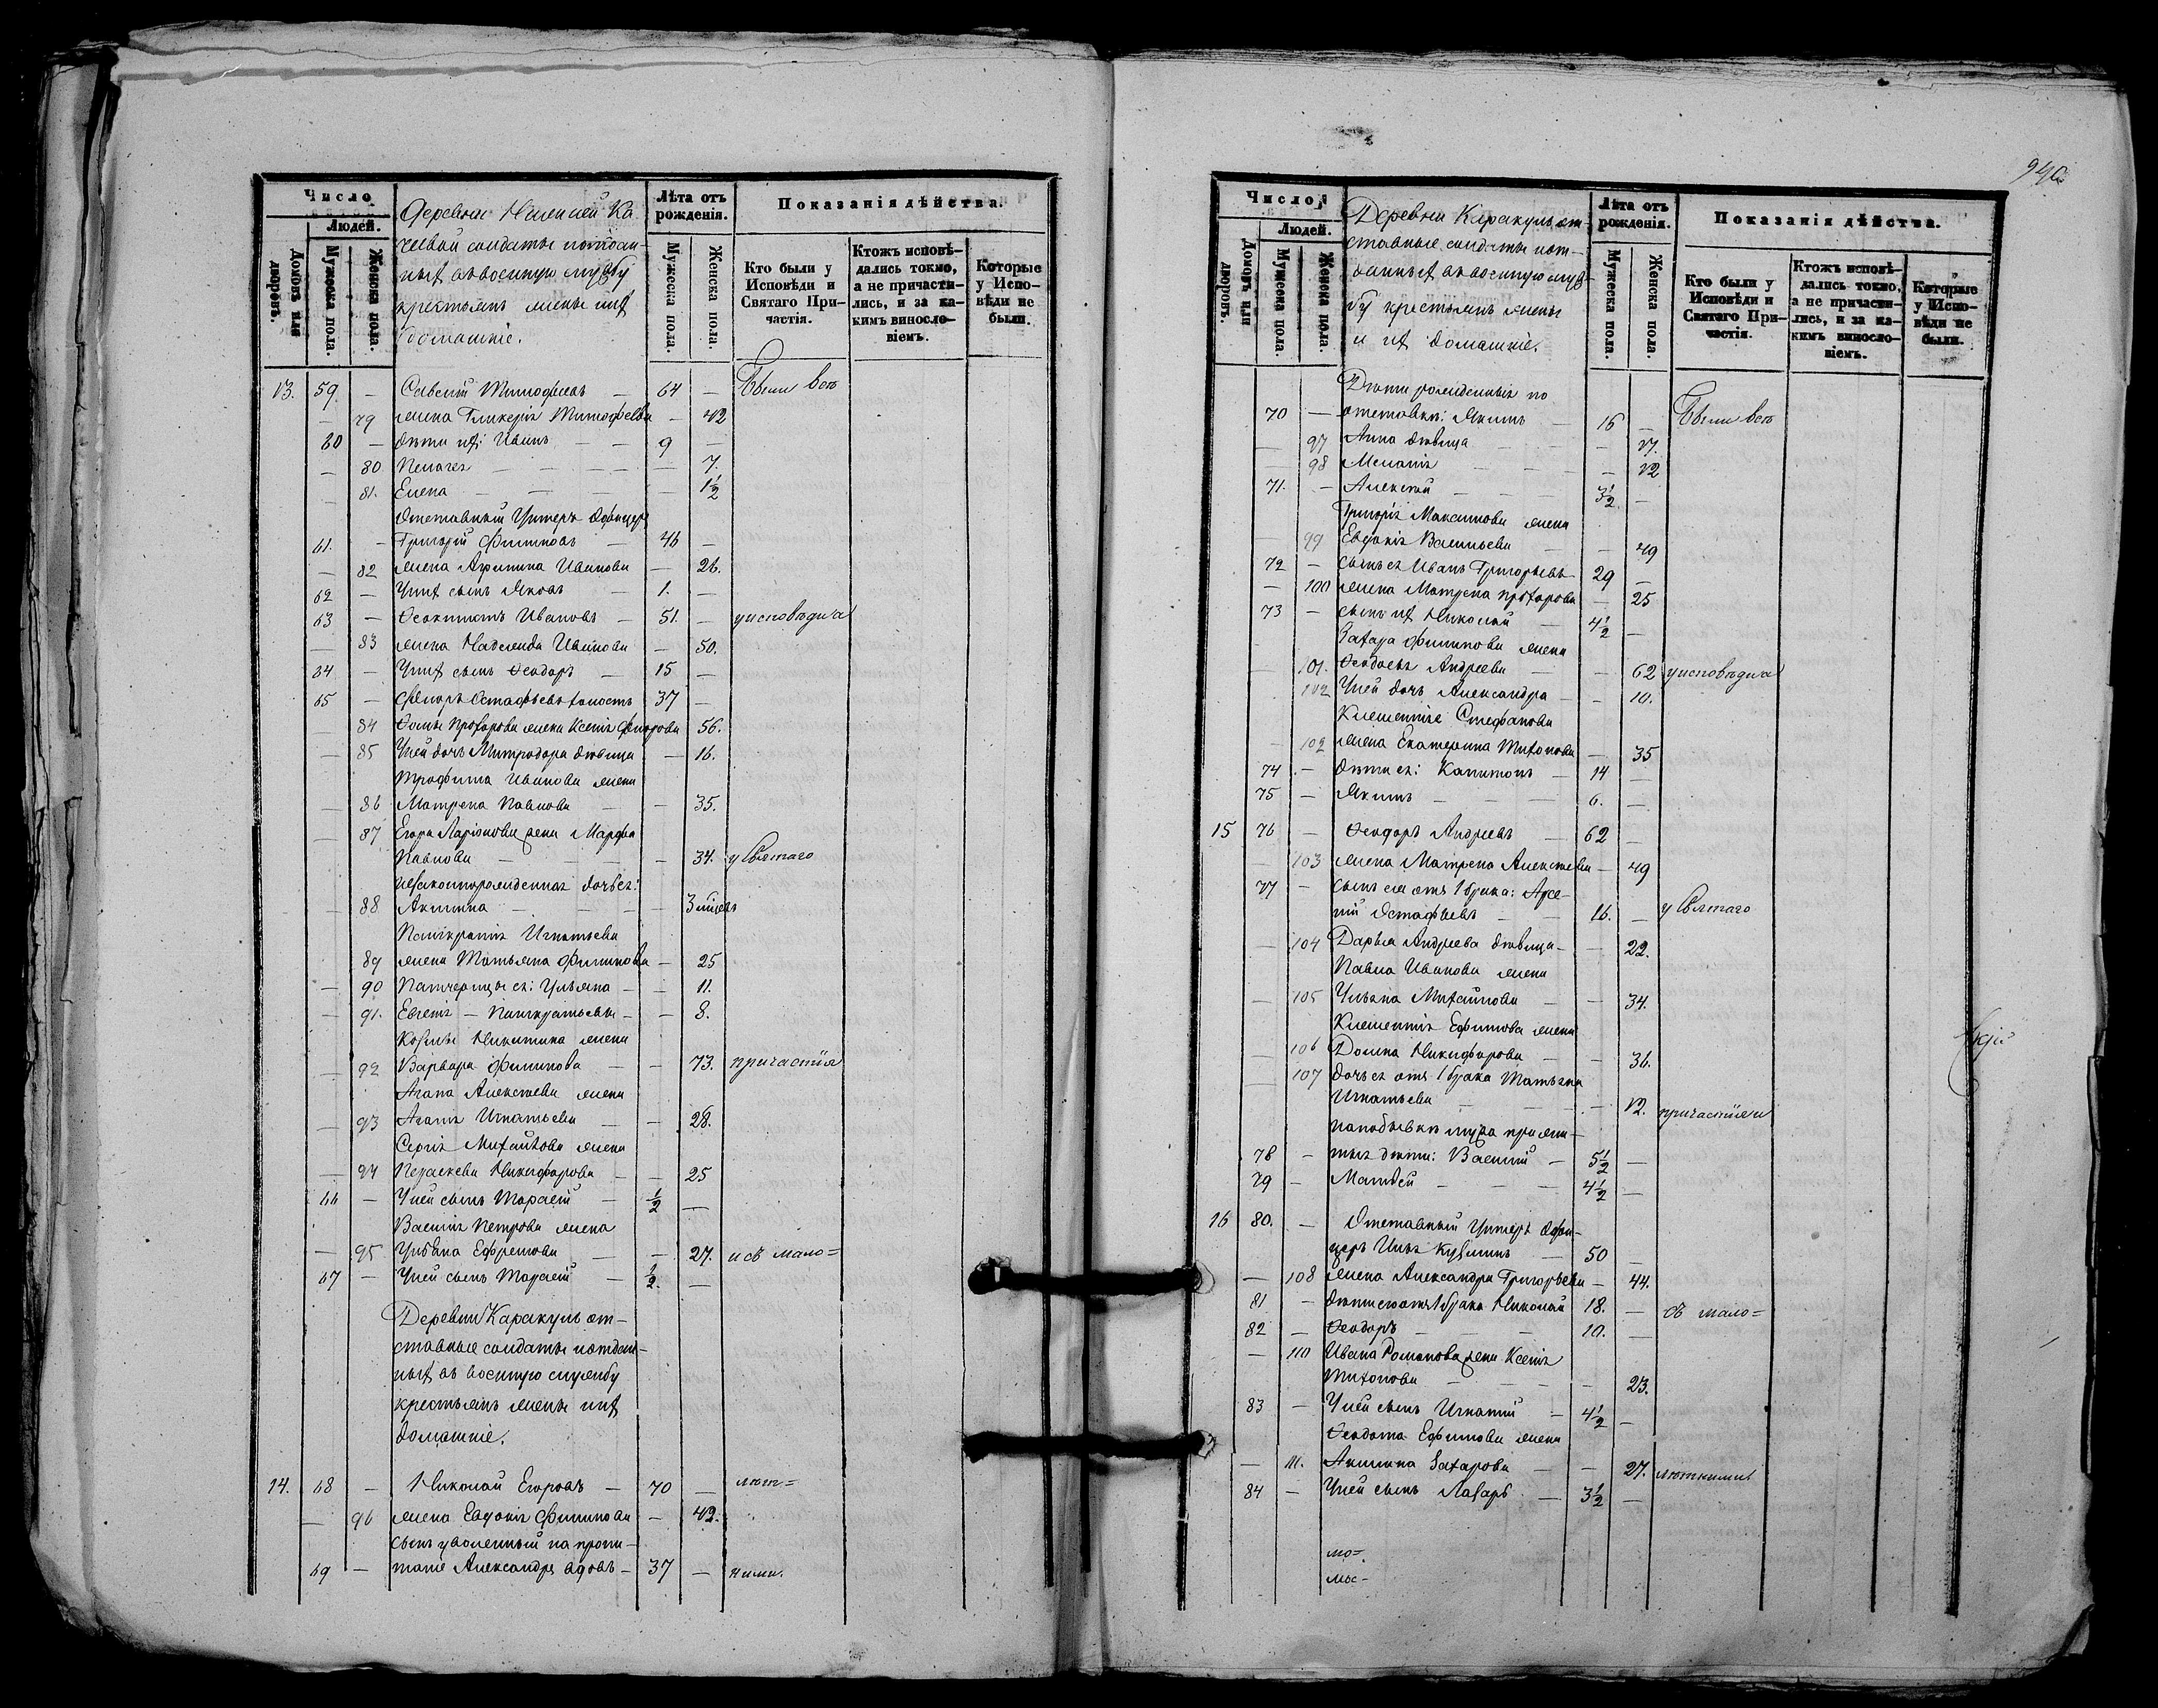 Число
Людей.
Домовъ или дворовъ.
Мужеска пола.
Женска пола.
Деревни Нижней Ка
чевой солдаты и отдан-
ныхъ въ военную службу
крестьянъ жены и ихъ
домашніе.
Лѣта отъ рожденія.
Мужеска пола.
Женска пола.
Показанія дѣйства.
Кто были у Исповѣди и Святаго При-частія.
Ктожъ исповѣ-дались токмо, а не причасти-лись, и за ка-кимъ винословіемъ.
Которые у Испо-вѣди не были.
13. 59. – Савелій Тимофѣевъ – 64 – Были всѣ
– 79 жена Гликерія Тимофеева – 42
60 – дѣти ихъ: Иванъ – – 9 –
– 80 Пелагея – – – – 7.
– 81. Елена – – – – 1½
Отставный Унтеръ Офицеръ
61. – Григорій Филиповъ – 46 –
– 82 жена Акулина Иванова – 26.
62 – Ихъ сынъ Яковъ – 1. –
63 – Феоктистъ Ивановъ – 51. – у исповѣди и
– 83 жена Надежда Иванова – 50.
64 – Ихъ сынъ Феодоръ – 15 –
65 – Остафьевъ холостъ 37 –
– 84 Фомы Прохорова жена Ксенія 56.
– 85 Ея дочь Митродора дѣвица – 16.
Трофима Иванова жена
– 86 Матрена Павлова – – 35.
– 87 Егора Ларіонова жена Марфа
Павлова – – – – 34. у Святаго
незаконнорожденная дочь ея:
– 88 Акилина – – – – 3 мѣсяца
Панкратія Игнатьева
89 жена Татьяна Филипова – 25
– 90 Падчерицы ея: Ульяна – – 11.
– 91. Евгенія – Панкратьевы – – 8.
Козмы Никитина жена
– 92 Варвара Филипова – – 73. причастія
Агапа Алексѣева жена
– 93 Агапія Игнатьева – – 28.
Сергія Михайлова жена
– 94 Параскева Никифорова – – 25
66 – Ея сынъ Тарасій – ½ –
Василія Петрова жена
– 95 Ульяна Ефремова – – 27. и съ мало=
67 – Ея сынъ Тарасій – ½. –
Деревни Каракулъ от-
ставные солдаты и отдан-
ныхъ въ военную службу
крестьянъ жены и ихъ
домашніе.
14. 68 – Николай Егоровъ – 70 – лѣт=
– 96 жена Евдокія Филипова – 42.
сынъ уволенный на пропи-
69 – таніе Александръ вдовъ – 37 – ними.
940
Число
Людей.
Домовъ или дворовъ.
Мужеска пола.
Женска пола.
Деревни Каракулъ от-
ставные солдаты и от-
данныхъ въ военную служ-
бу крестьянъ жены
и ихъ домашніе.
Лѣта отъ рожденія.
Мужеска пола.
Женска пола.
Показанія дѣйства.
Кто были у Исповѣди и Святаго При-частія.
Ктожъ исповѣ-дались токмо, а не причасти-лись, и за ка-кимъ винословіемъ.
Которые у Испо-вѣди не были.
Дѣти рожденныя по
70 – отставкѣ: Якимъ – 16 – Были всѣ
– 97 Анна дѣвица – – 17.
– 98 Меланія – – – – 12
71. – Алексѣй – – – 3½ –
Григорія Максимова жена
99 Евдокія Васильева – – 49
72 – Сынъ ея Иванъ Григорьевъ – 29 –
– 100 жена Матрена Прохорова – 25
73 – сынъ ихъ Николай – 4½ –
Захара Филипова жена
– 101. Феодосья Андреева – – 62 у исповѣди и
102 Ея дочь Александра – – 10.
Клементія Стефанова
– 102 жена Екатерина Тихонова – 35
74 – дѣти ея: Капитонъ – 14 –
75 – Якимъ – – – 6. –
15 76 – Феодоръ Андреевъ – 62 –
– 103 жена Матрена Алексѣева – 49
77 – сынъ ея отъ 1 брака: Арсе-
ній Остафьевъ – – 16. – у Святаго
– 104 Дарья Андреева дѣвица – – 22.
Павла Иванова жена
– 105 Ульяна Михайлова – – 34.
Клементія Ефимова жена
– 106 Домна Никифорова – – 36.
– 107 дочь ея отъ 1 брака Татьяна
Игнатьева – – – – 12. причастія и
по побывкѣ мужа прижи-
78 – тыя дѣти: Василій – 5½ –
79 – Матвей – – – 4½ –
16 80. – Отставный Унтеръ Офи-
церъ Илья Кузминъ – 50 –
– 108 жена Александра Григорьева – 44.
81 – дѣти его отъ 1 брака Николай 18. – съ мало=
82 – Феодоръ – – – 10. –
– 110 Ивана Романова жена Ксенія
Тихонова – – – – 23.
83 – Ея сынъ Игнатій – 4½ –
Феодота Ефимова жена
– 111. Акилина Захарова – – 27. лѣтними
84 – Ея сынъ Лазарь – 3½ –